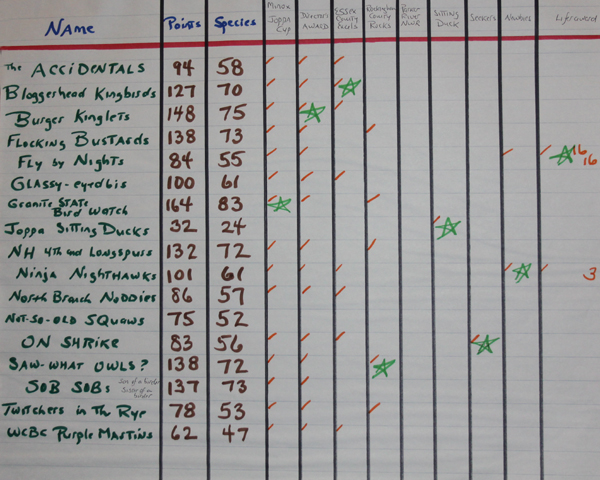 Name Points Species Minox Joppa Cup Director's Award Essex County Locals Rockingham County Rocks Power River Nuke Sitting Duck Seniors Newbies Lifer award
The Accidentals 94 58
Bloggerhead Kingbirds 127 70
Burger Kinglets 148 75
Flocking Bustards 138 73
Fly by Nights 84 55 16 16
Glassy-eyed bis 100 61
Granite State Bird Watch 164 83
Joppa Sitting Ducks 32 24
NH 4th and Longspurs 132 72
Ninja Nighthawks 101 61 3
North Branch Noddies 86 57
Not-So-Old Squaws 75 52
On Shrike 83 56
Saw-What Owls? 138 72
SOB SOBs 137 73
Twitchers in The Rye 78 53
WCBC Purple Martins 62 47